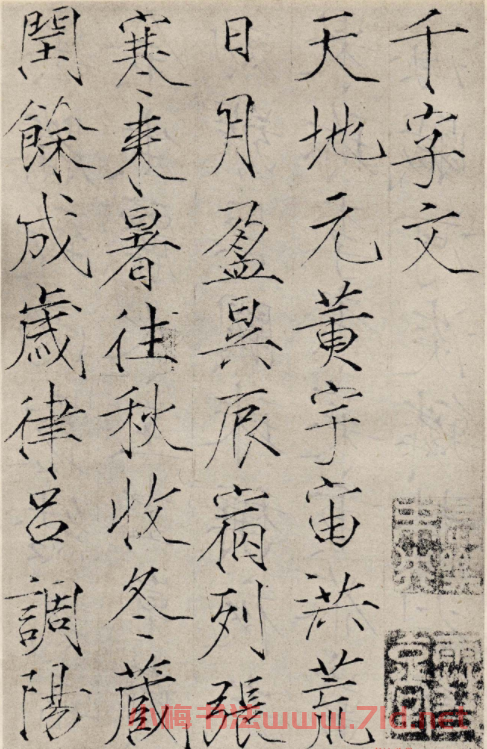 千字文
天地元黃宇宙洪荒
日月盈昃辰宿列張
寒来暑往秋收冬藏
閏餘成歲律呂調陽
小梅书法www.7ld.net